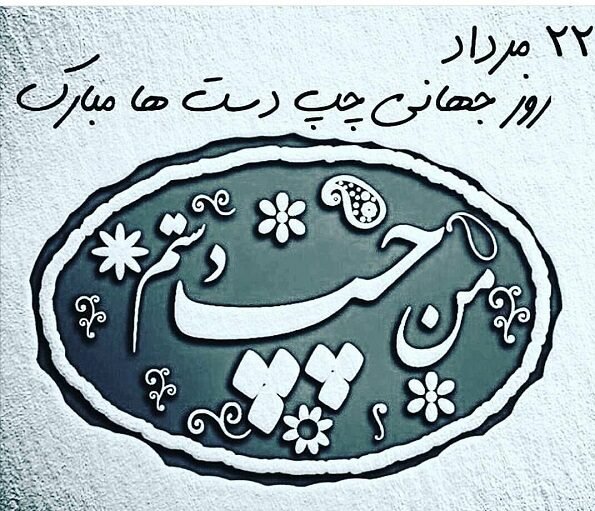 ۲۲ مرداد
روز جهانی چپ دست ها مبارک
من چپ دستم